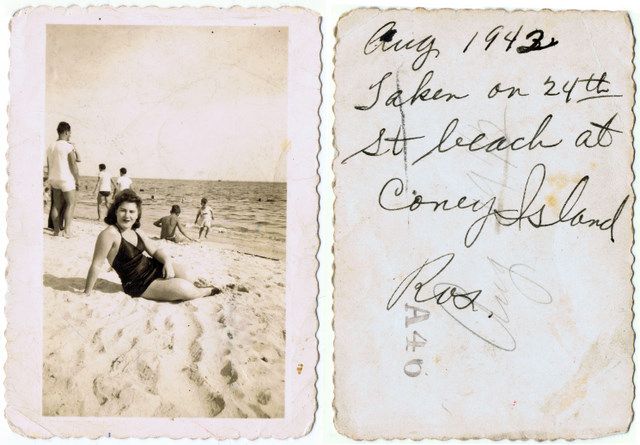 Aug 1942
Taken on 24th
St beach at
Coney Island
Ros.
A46